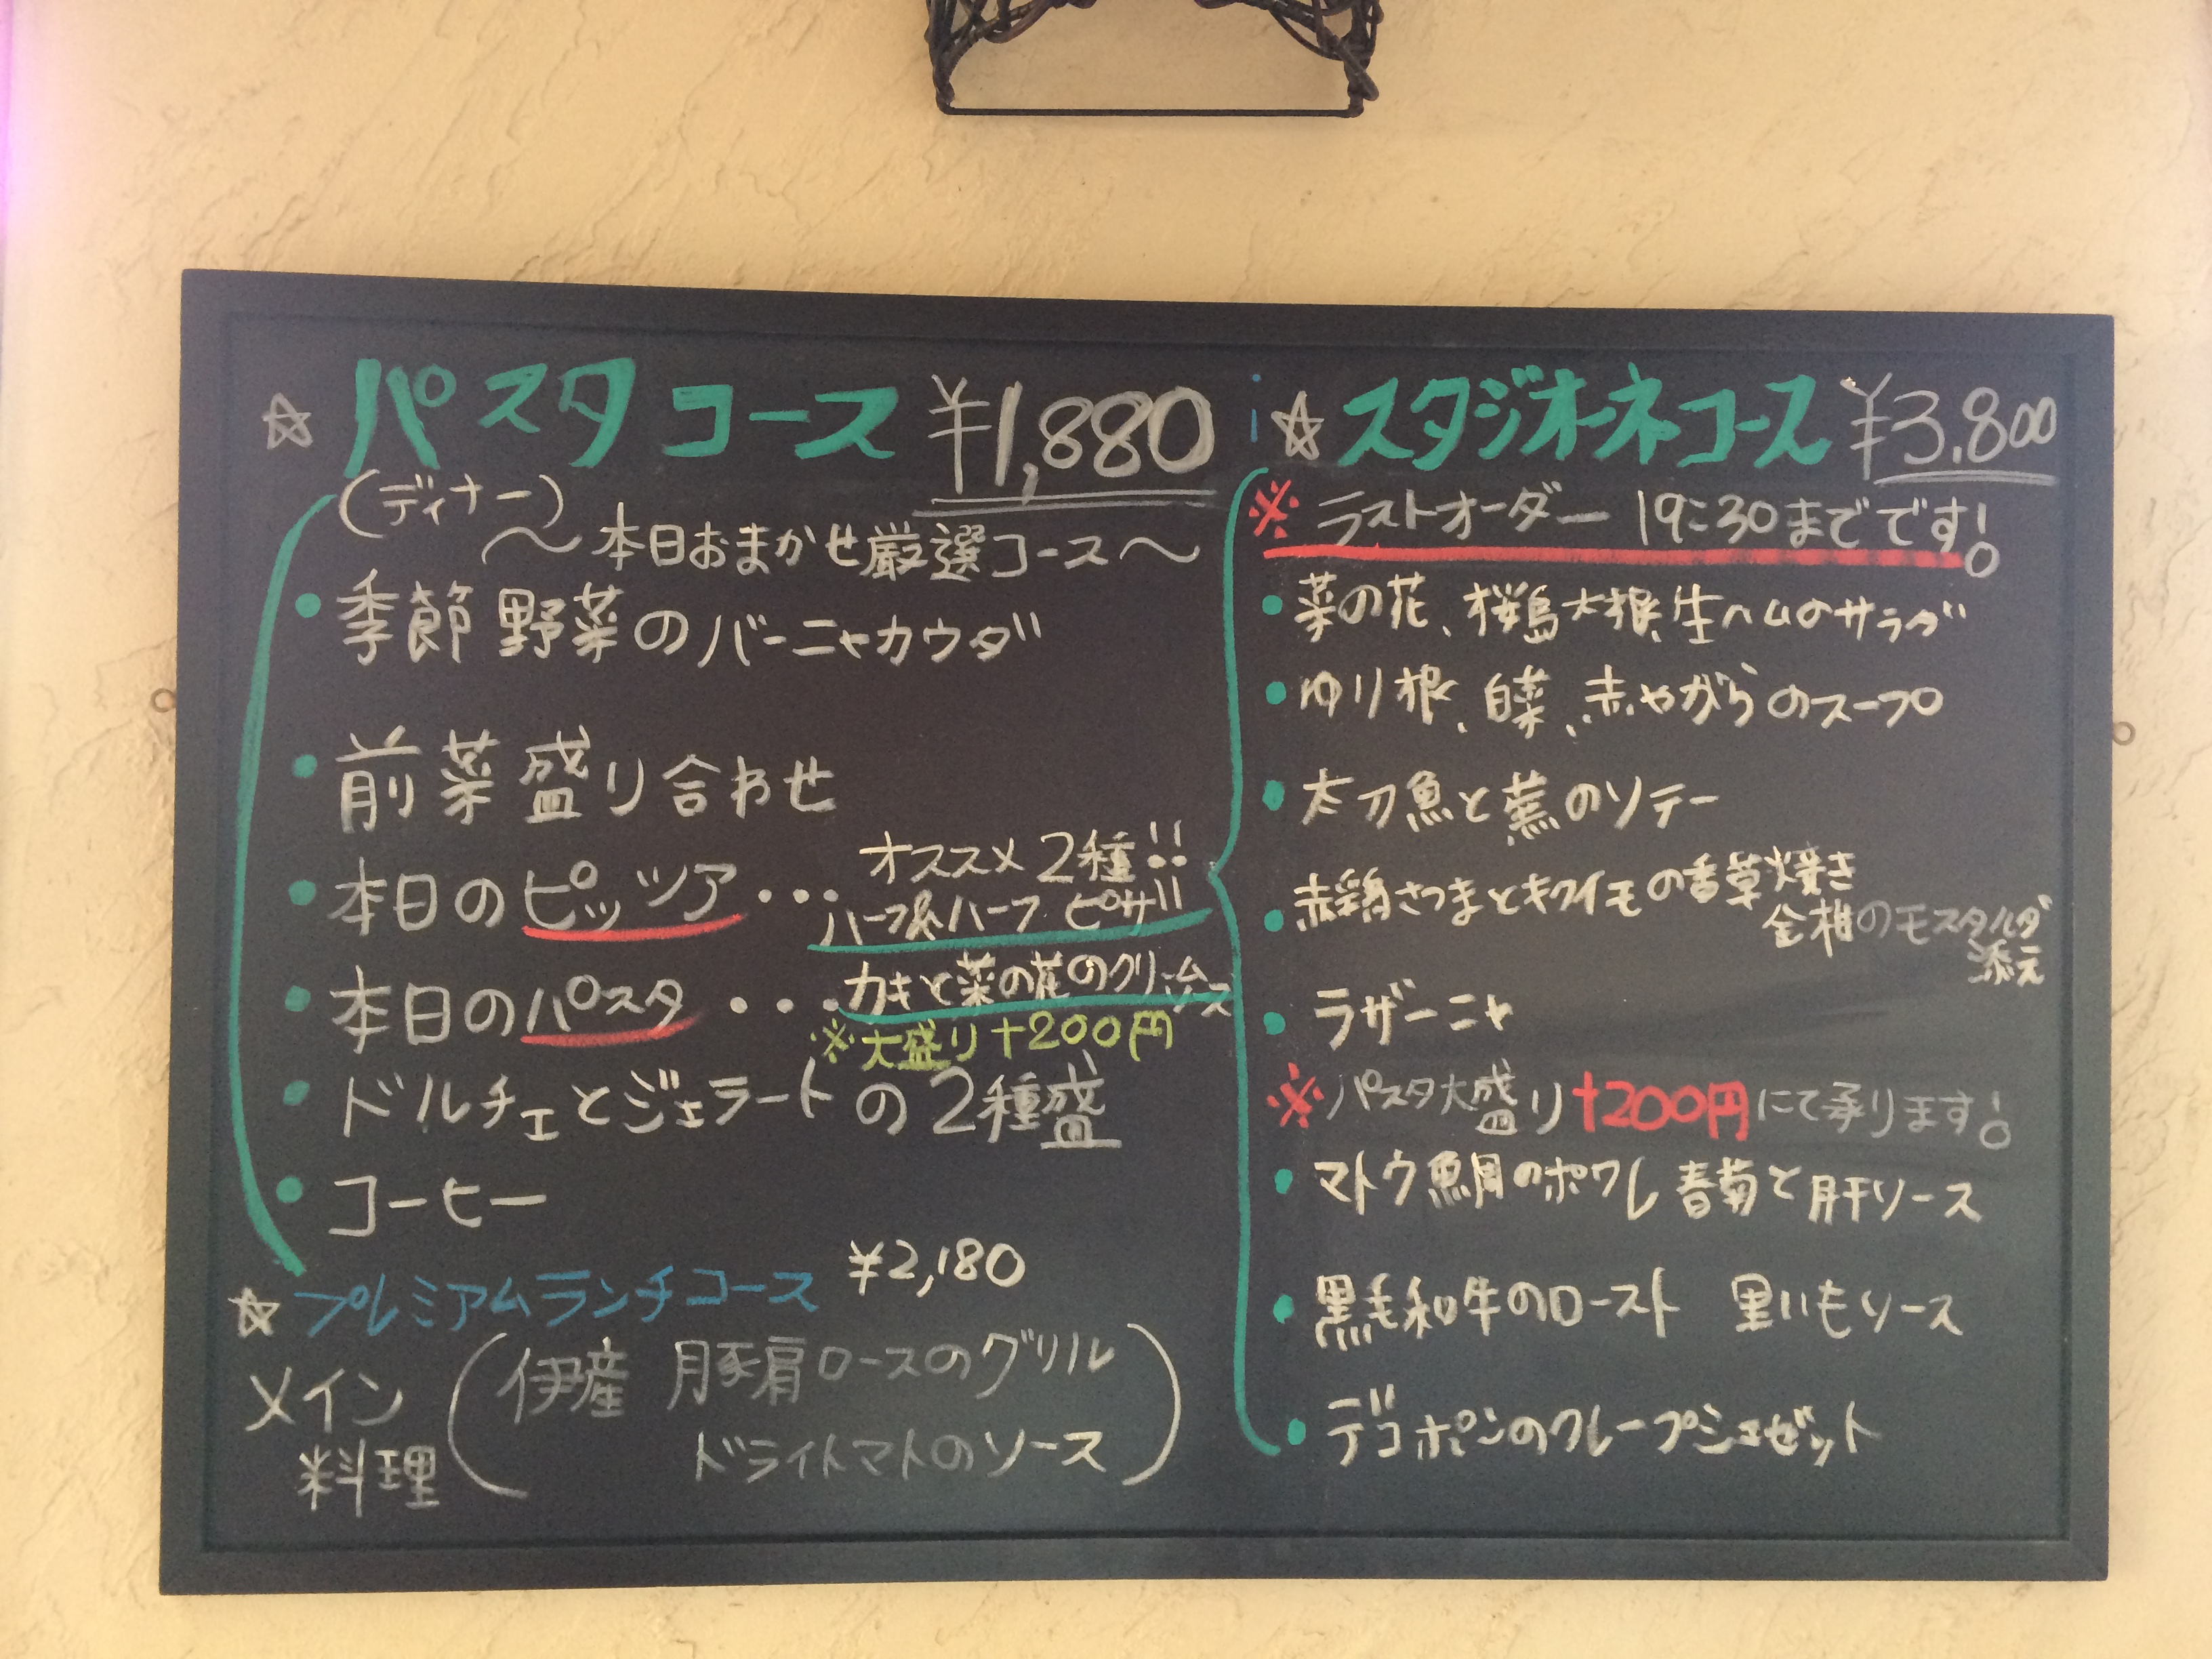 ☆ パスタコース ¥1,880
(ディナー)
〜本日おまかせ厳選コース〜
・季節野菜のバーニャカウダ
・前菜盛り合わせ
・本日のピッツァ・・・オススメ2種!!
ハーフ&ハーフ ピザ!!
・本日のパスタ・・・カキと菜の花のクリームソース
※大盛り+200円
・ドルチェとジェラートの2種盛
・コーヒー
☆プレミアムランチコース ¥2,180
メイン料理
(伊産 豚肩ロースのグリル
ドライトマトのソース)
☆スタジオーネコース ¥3.800
※ラストオーダー 19:30までです!
・菜の花、桜島大根、生ハムのサラダ
・ゆり根、白菜、赤やがらのスープ
・太刀魚と蕪のソテー
・赤鶏さつまとキクイモの香草焼き
金柑のモスタルダ
添え
・ラザーニャ
※パスタ大盛り+200円にて承ります!
・マトウ鯛のポワレ 春菊と肝ソース
・黒毛和牛のロースト 里いもソース
・デコポンのクレープシュゼット